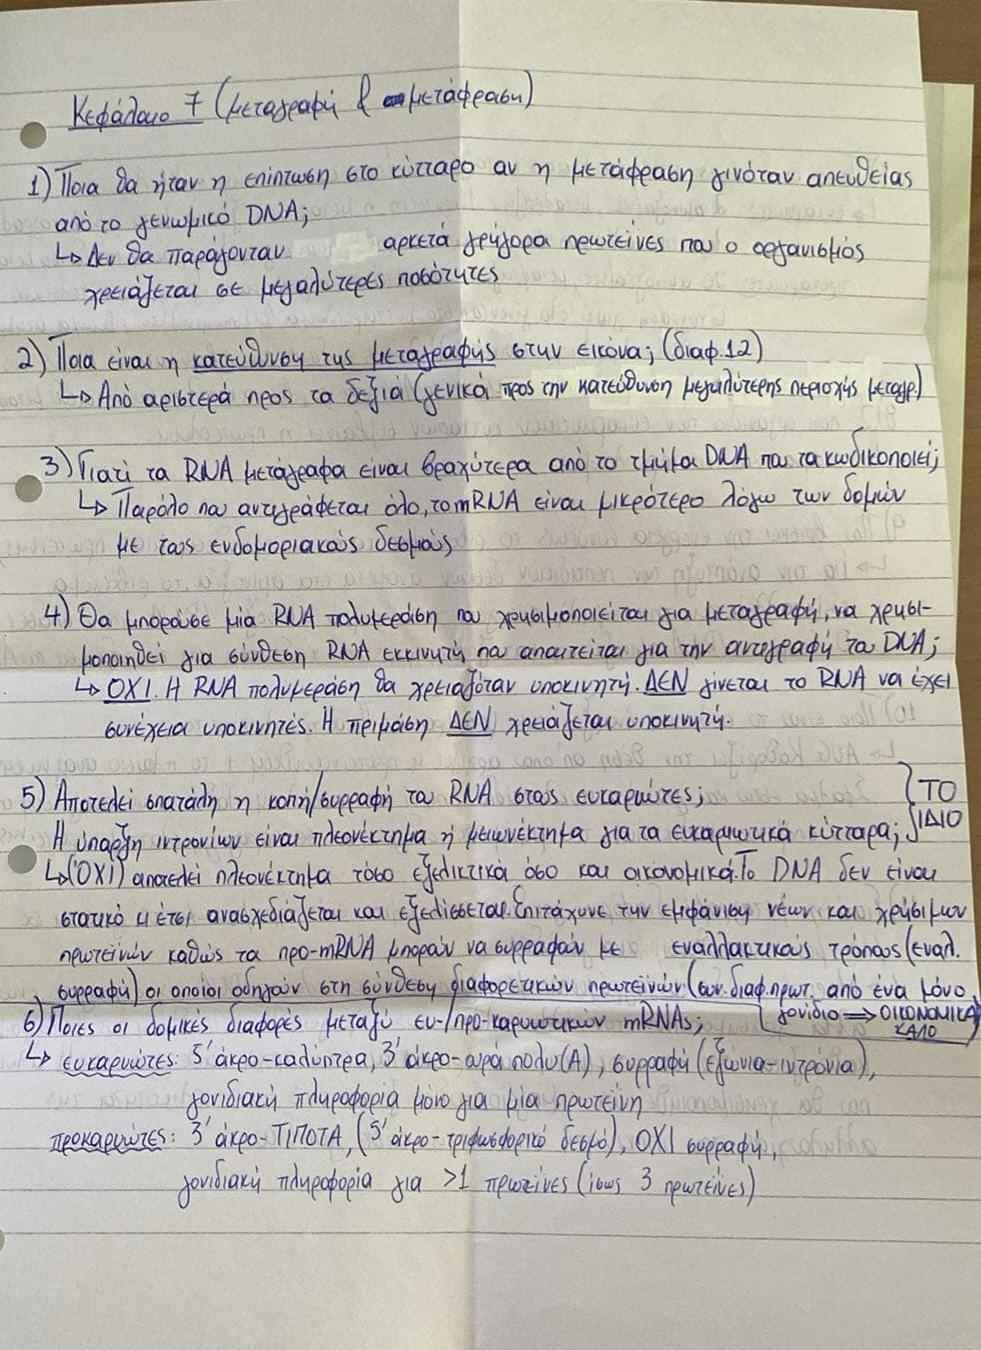 Κεφάλαιο 7 (μεταγραφή & μετάφραση)
1) Ποια θα ήταν η επίπτωση στο κύτταρο αν η μετάφραση γινόταν απευθείας
από το γενωμικό DNA;
↳ Δεν θα παράγονταν αρκετά γρήγορα πρωτεΐνες που ο οργανισμός
χρειάζεται σε μεγαλύτερες ποσότητες
2) Ποια είναι η κατεύθυνση της μεταγραφής στην εικόνα; (διαφ.12)
↳ Από αριστερά προς τα δεξιά (γενικά προς την κατεύθυνση μεγαλύτερης περιοχής μεταγρ.)
3) Γιατί τα RNA μετάγραφα είναι βραχύτερα από το τμήμα DNA που τα κωδικοποιεί;
↳ Παρόλο που αντιγράφεται όλο, το mRNA είναι μικρότερο λόγω των δομών
με τους ενδομοριακούς δεσμούς
4) Θα μπορούσε μία RNA πολυμεράση που χρησιμοποιείται για μεταγραφή, να χρησι-
μοποιηθεί για σύνθεση RNA εκκινητή που απαιτείται για την αντιγραφή του DNA;
↳ ΟΧΙ. Η RNA πολυμεράση θα χρειαζόταν υποκινητή. ΔΕΝ γίνεται το RNA να έχει
συνέχεια υποκινητές. Η πριμάση ΔΕΝ χρειάζεται υποκινητή.
5) Αποτελεί σπατάλη η κοπή/συρραφή του RNA στους ευκαρυώτες; } ΤΟ
Η ύπαρξη ιντρονίων είναι πλεονέκτημα ή μειωνέκτημα για τα ευκαρυωτικά κύτταρα; ΙΔΙΟ
↳ (ΌΧΙ) αποτελεί πλεονέκτημα τόσο εξελικτικά όσο και οικονομικά. Το DNA δεν είναι
στατικό κι έτσι ανασχεδιάζεται και εξελίσσεται. Επιτάχυνε την εμφάνιση νέων και χρήσιμων
πρωτεϊνών καθώς τα προ-mRNA μπορούν να συρραφούν με εναλλακτικούς τρόπους (εναλ.
συρραφή) οι οποίοι οδηγούν στη σύνθεση διαφορετικών πρωτεϊνών (συν. διαφ. πρωτ. από ένα μόνο
γονίδιο ⇒ ΟΙΚΟΝΟΜΙΚΑ
ΚΑΛΟ
6) Ποιες οι δομικές διαφορές μεταξύ ευ-/προ-καρυωτικών mRNAs;
↳ ευκαρυώτες: 5' άκρο-καλύπτρα, 3' άκρο-ουρά πολυ(Α), συρραφή (εξώνια-ιντρόνια),
γονιδιακή πληροφορία μόνο για μία πρωτεΐνη
προκαρυώτες: 3' άκρο-ΤΙΠΟΤΑ, (5' άκρο-τριφωσφορικό δεσμό), ΟΧΙ συρραφή,
γονιδιακή πληροφορία για >1 πρωτεΐνες (ίσως 3 πρωτεΐνες)